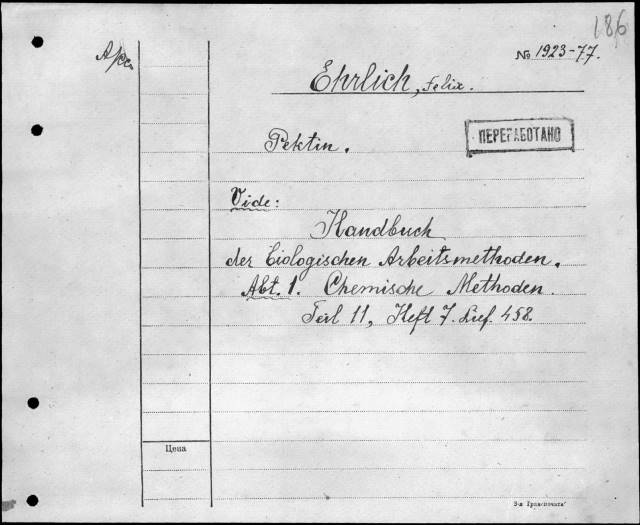 186
№ 1923-77.
Ehrlich, Felix.
ПЕРЕРАБОТАНО
Pektin.
Vide:
Handbuch
der biologischen Arbeitsmethoden.
Abt. 1. Chemische Methoden.
Teil 11, Heft 7. Lief. 458.
Цена